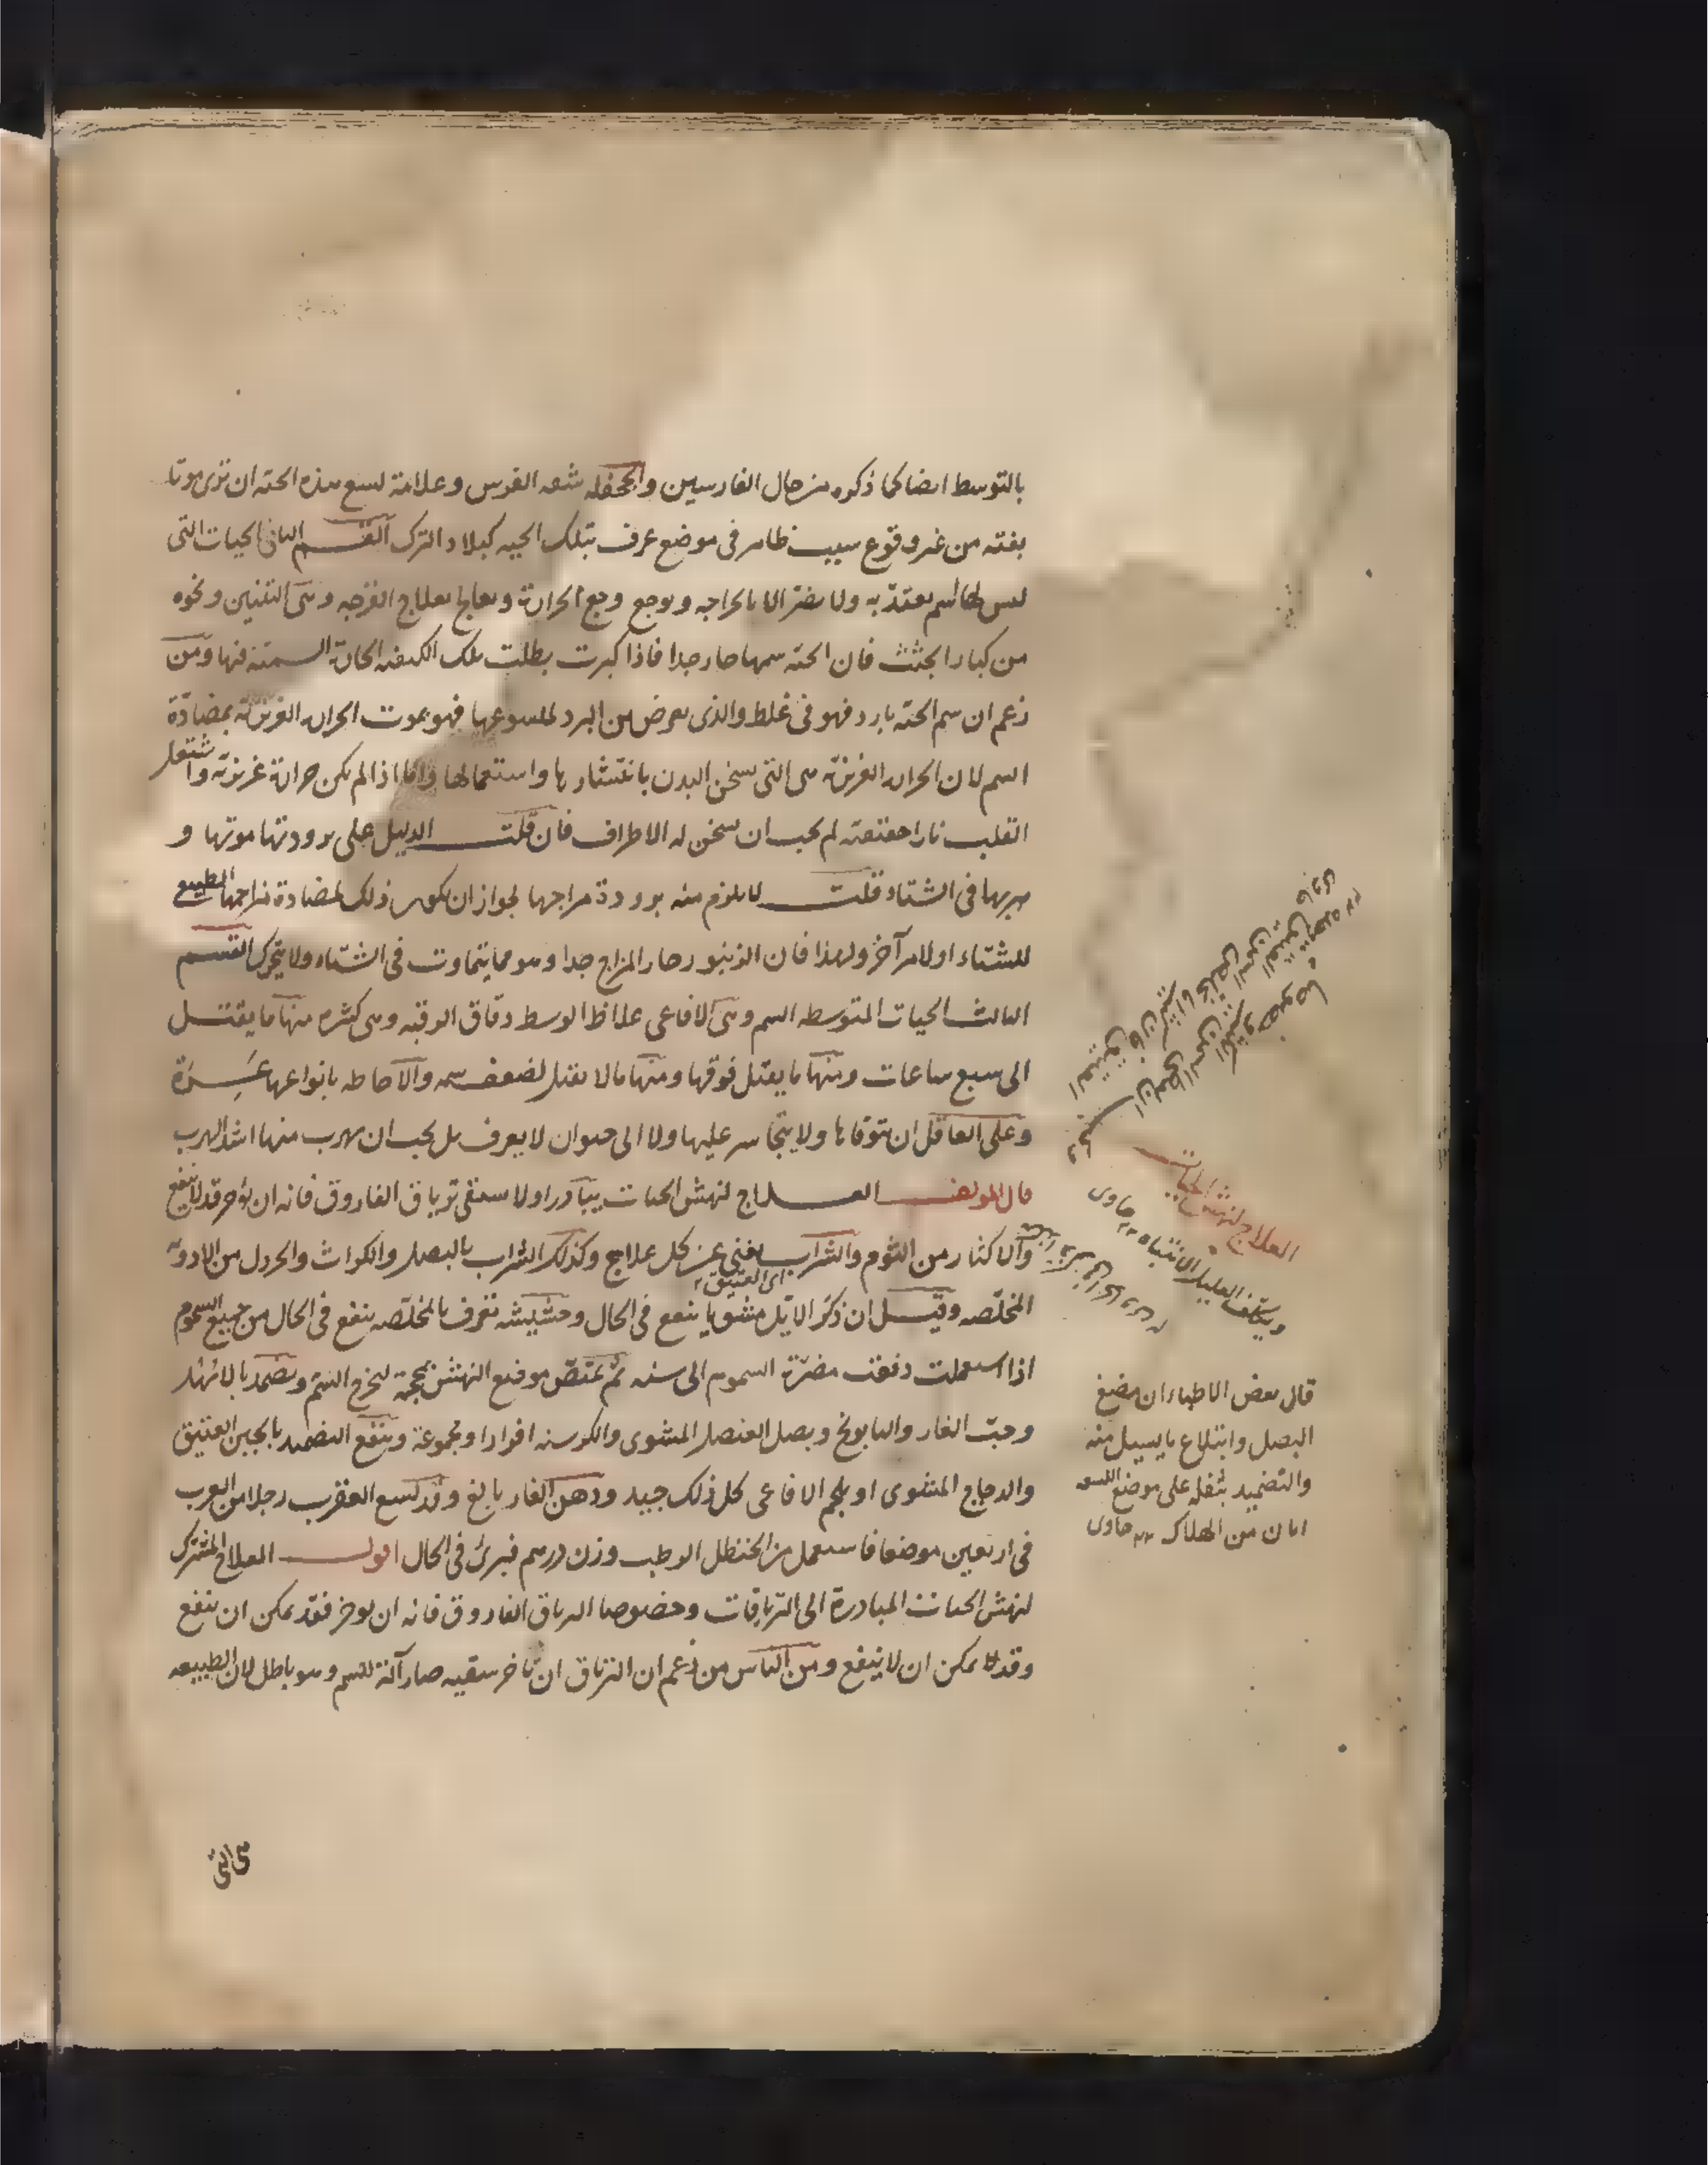 بالتوسط ايضا كما ذكره من حال الفارسين والجحفله شفه الفرس وعلامة لسع هذه الحيه ان ترى موتا
بغته من غير وقوع سبب ظاهر فى موضع عرف بتلك الحيه كبلاد الترك القسم الثانى الحيات التى
ليس لها سم يعتد به ولا يضر الا بالجراحه ويوجع وجع الجراحة ويعالج بعلاج القرحه وهى التنين ونحوه
من كبار الجثث فان الحيه سمها حار جدا فاذا كبرت بطلت تلك الكيفيه الحادة السميه فيها ومن
زعم ان سم الحيه بارد فهو فى غلط والذى يعرض من البرد لملسوعها فهو بموت الحراره الغريزيه بمضادة
السم لان الحراره الغريزيه هى التى تسخن البدن بانتشارها واستعمالها واما اذا لم يكن حرارة غريزيه واشتعل
القلب نارا حقيقيه لم يجب ان تسخن له الاطراف فان قلت الدليل على برودتها موتها و
هربها فى الشتاء قلت لا يلزم منه برودة مزاجها لجواز ان يكون ذلك لمضادة مزاجها الطبيعى
للشتاء او لامر آخر ولهذا فان الزنبور حار المزاج جدا وهو مما يتماوت فى الشتاء ولا يتحرك القسم
الثالث الحيات المتوسطه السم وهى الافاعى غلاظ الوسط دقاق الرقبه وهى كثيره منها ما يقتل
الى سبع ساعات ومنها ما يقتل فوقها ومنها ما لا يقتل لضعف سمه والاحاطه بانواعها عسرة
وعلى العاقل ان يتوقاها ولا يتجاسر عليها ولا الى حيوان لا يعرف بل يجب ان يهرب منها اشد الهرب
قال المولف العلاج لنهش الحيات يبادر اولا بسقى ترياق الفاروق فانه ان تؤخر قد لا ينفع
والاكثار من الثوم والشراب يغنى عن كل علاج وكذلك الشراب بالبصل والكراث والخردل من الادويه
اى العتيق
المخلصه وقيل ان ذكر الايل مشويا ينفع فى الحال وحشيشه تعرف بالمخلصه ينفع فى الحال من جميع السموم
اذا استعملت دفعت مضرة السموم الى سنه ثم يمتص موضع النهش بمحجمة لتخرج السم ويضمد بالاشهل
وحب الغار والبابونج وبصل العنصل المشوى والكرسنه افرادا ومجموعة وينفع التضميد بالجبن العتيق
والدجاج المشوى او بلحم الافاعى كل ذلك جيد ودهن الغار بالغ وقد لسع العقرب رجلا من العرب
فى اربعين موضعا فاستعمل من الحنظل الرطب وزن درهم فبرئ فى الحال اقول العلاج المشترك
لنهش الحيات المبادرة الى الترياقات وخصوصا الترياق الفاروق فانه ان يوخر فقد يمكن ان ينفع
وقد لا يمكن ان لا ينفع ومن الناس من زعم ان الترياق ان تاخر سقيه صار آلة للسم وهو باطل لان الطبيعه
العلاج لنهش الحيات
ويكلف العليل الانتباه ١٢ حاوى
قال بعض الاطباء ان مضغ
البصل وابتلاع ما يسيل منه
والتضميد بثفله على موضع اللسعه
امان من الهلاك ١٢ حاوى